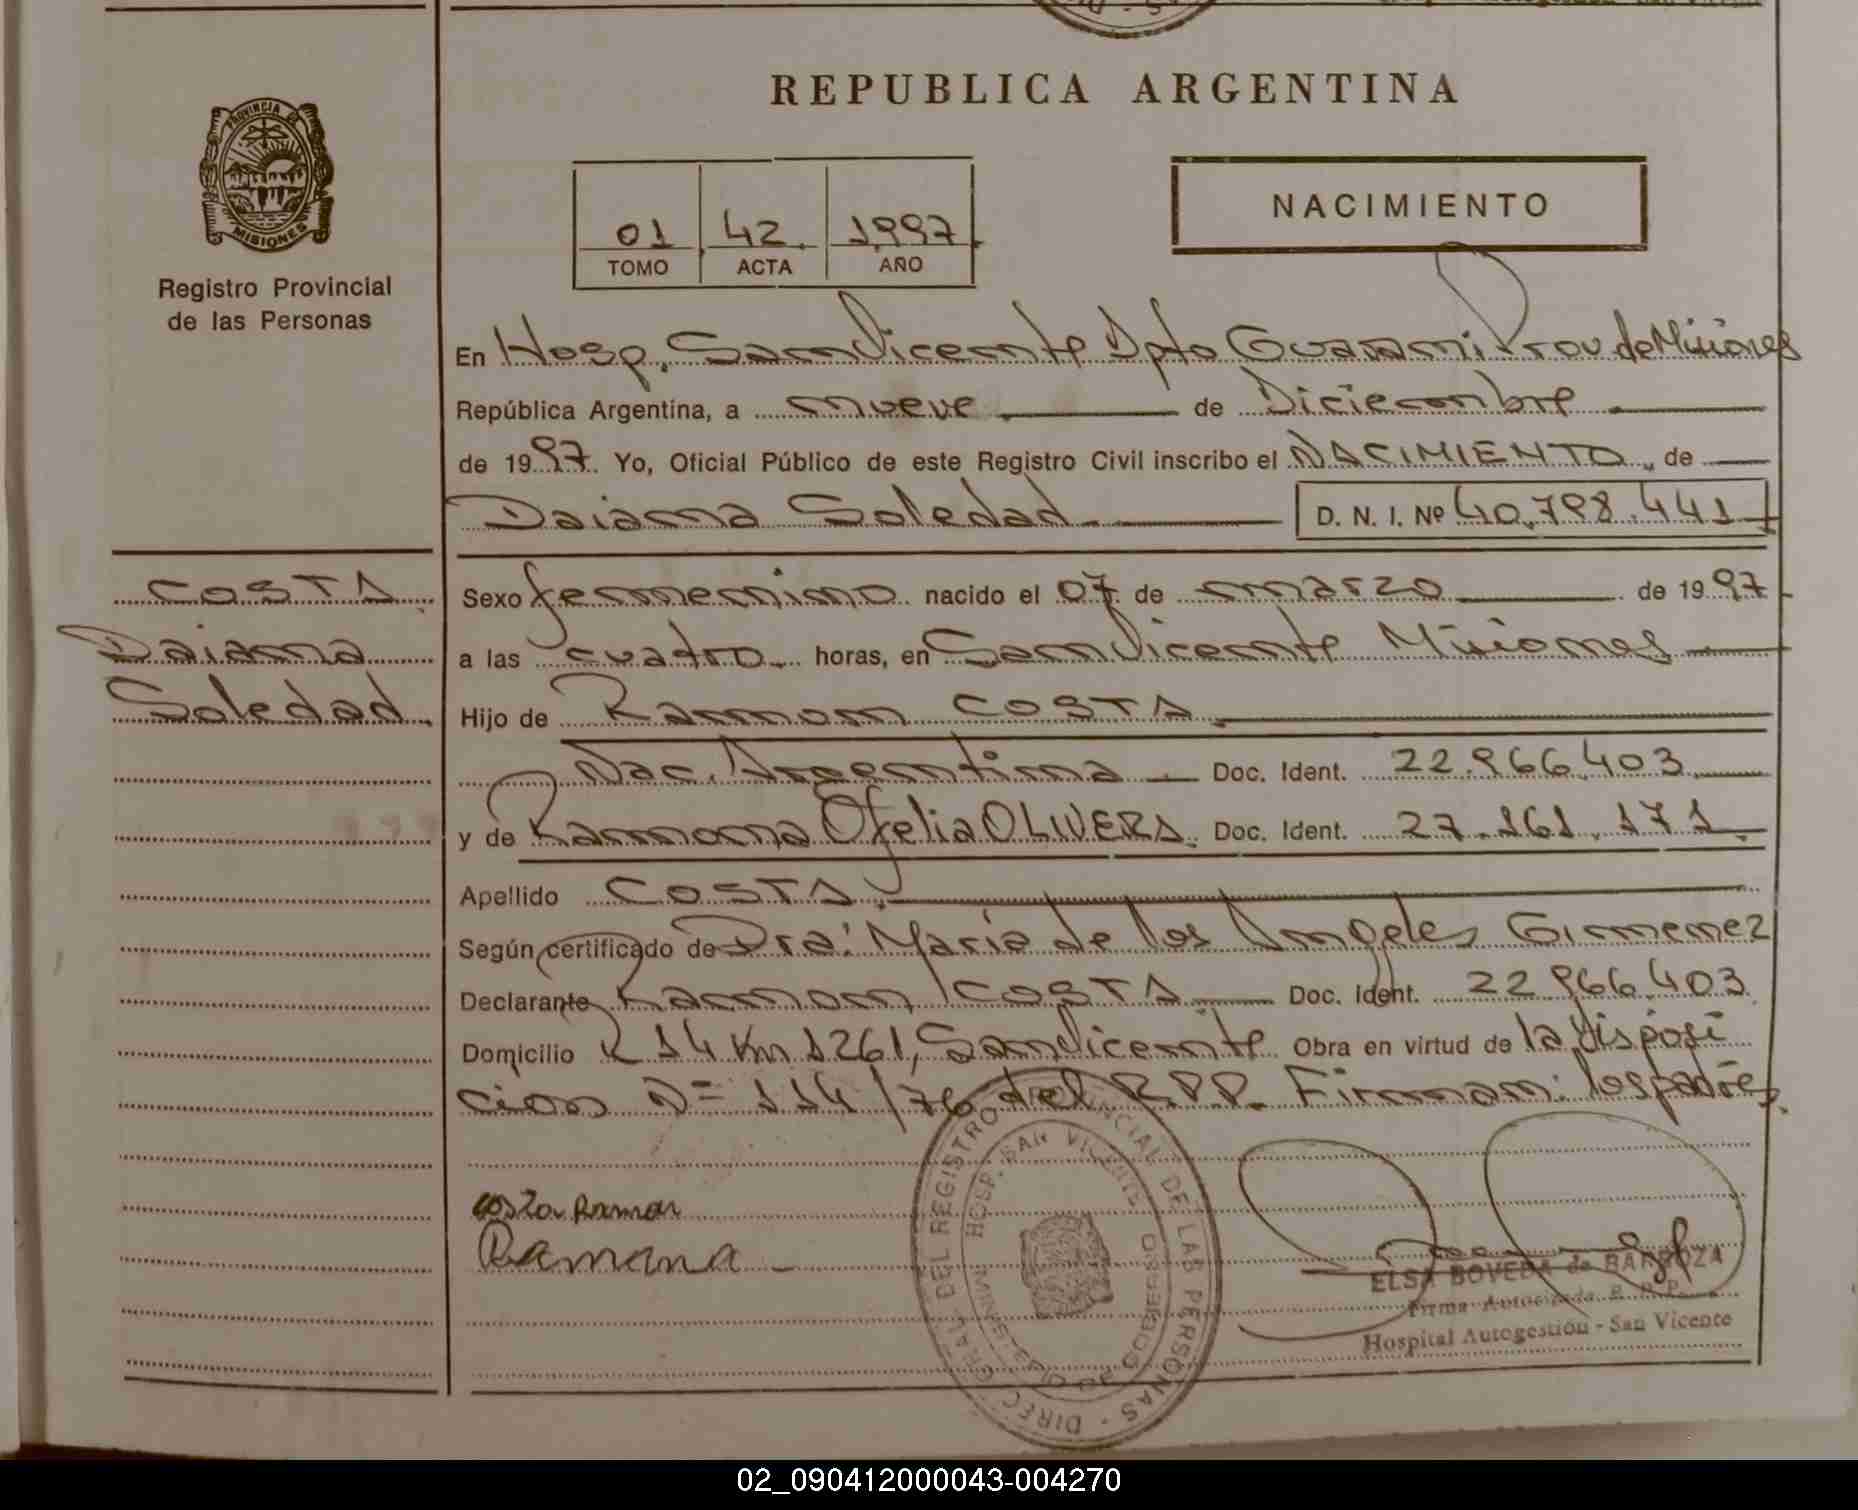 REPUBLICA ARGENTINA
PROVINCIA DE
MISIONES
Registro Provincial
de las Personas
01 42 1997
TOMO ACTA AÑO
NACIMIENTO
En Hosp. San Vicente Dpto Guarani Prov. de Misiones
República Argentina, a nueve de Diciembre
de 1997. Yo, Oficial Público de este Registro Civil inscribo el NACIMIENTO, de
Daiana Soledad. D. N. I. Nº 40.798.441
COSTA
Daiana
Soledad.
Sexo femenino nacido el 07 de marzo de 1997
a las cuatro horas, en San Vicente Misiones
Hijo de Ramon COSTA.
Nac. Argentina Doc. Ident. 22.966.403
y de Ramona Ofelia OLIVERA. Doc. Ident. 27.161.171.
Apellido COSTA.
Según certificado de Dra: Maria de los Angeles Gimenez
Declarante Ramon COSTA Doc. Ident. 22.966.403
Domicilio R 14 Km 1261, San Vicente Obra en virtud de la Disposi
cion Nº 114/76 del R.P.P. Firman: los padres.
costa Ramon
Ramona
DIREC. GRAL DEL REGISTRO PROVINCIAL DE LAS PERSONAS
HOSP. SAN VICENTE
MINISTERIO DE GOBIERNO
ELSA BOVEDA de BARBOZA
Firma Autorizada R. P. P.
Hospital Autogestión - San Vicente
02_090412000043-004270